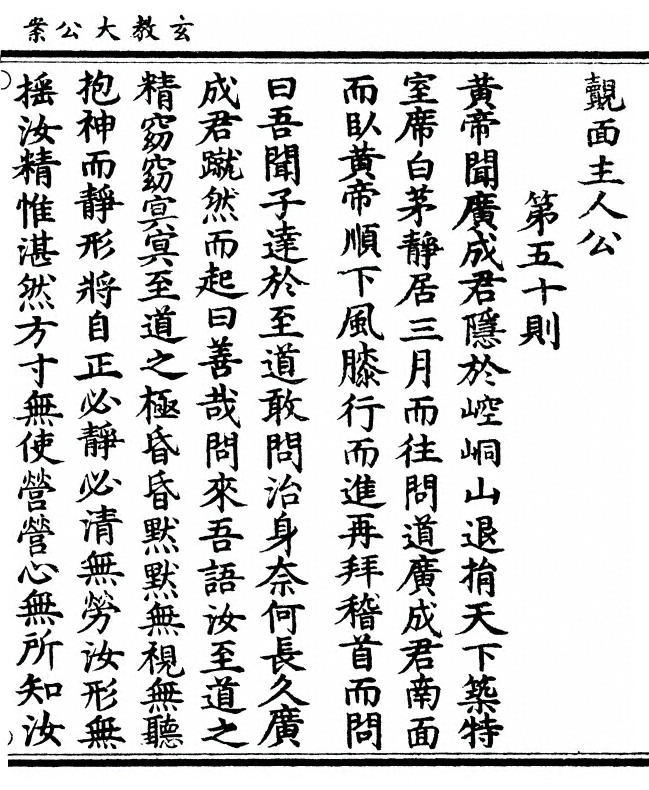 玄教大公案
覿面主人公
第五十則
黃帝聞廣成君隱於崆峒山退捐天下築特
室席白茅靜居三月而往問道廣成君南面
而臥黃帝順下風膝行而進再拜稽首而問
曰吾聞子達於至道敢問治身奈何長久廣
成君蹴然而起曰善哉問來吾語汝至道之
精窈窈冥冥至道之極昏昏默默無視無聽
抱神而靜形將自正必靜必清無勞汝形無
搖汝精惟湛然方寸無使營營心無所知汝